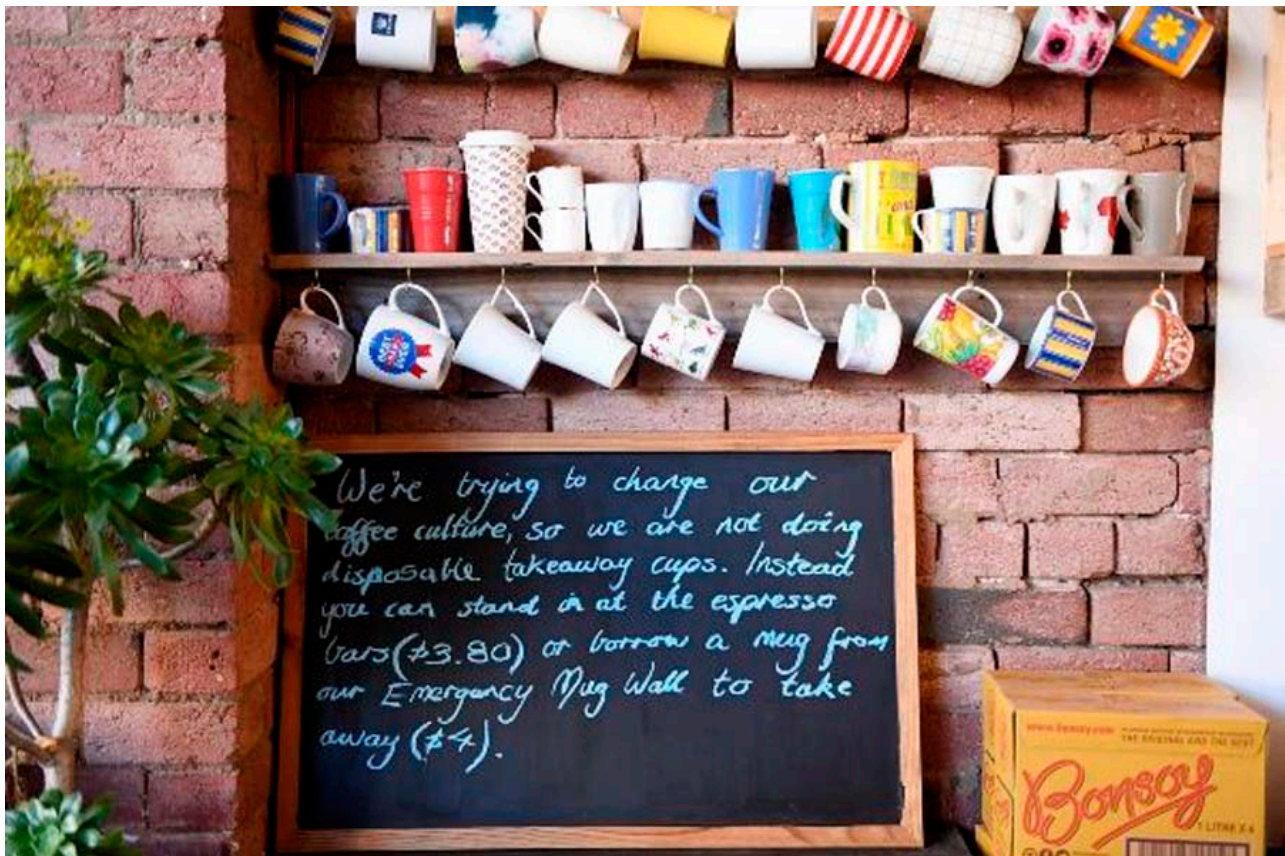 We're trying to change our
coffee culture, so we are not doing
disposable takeaway cups. Instead
you can stand in at the espresso
bars ($3.80) or borrow a mug from
our Emergency Mug Wall to take
away ($4).
www.bonsoy.com
THE ORIGINAL AND THE BEST
Bonsoy
1 LITRE X 6